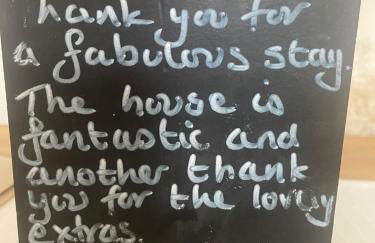 Thank you for
a fabulous stay.
The house is
fantastic and
another thank
you for the lovely
extras.